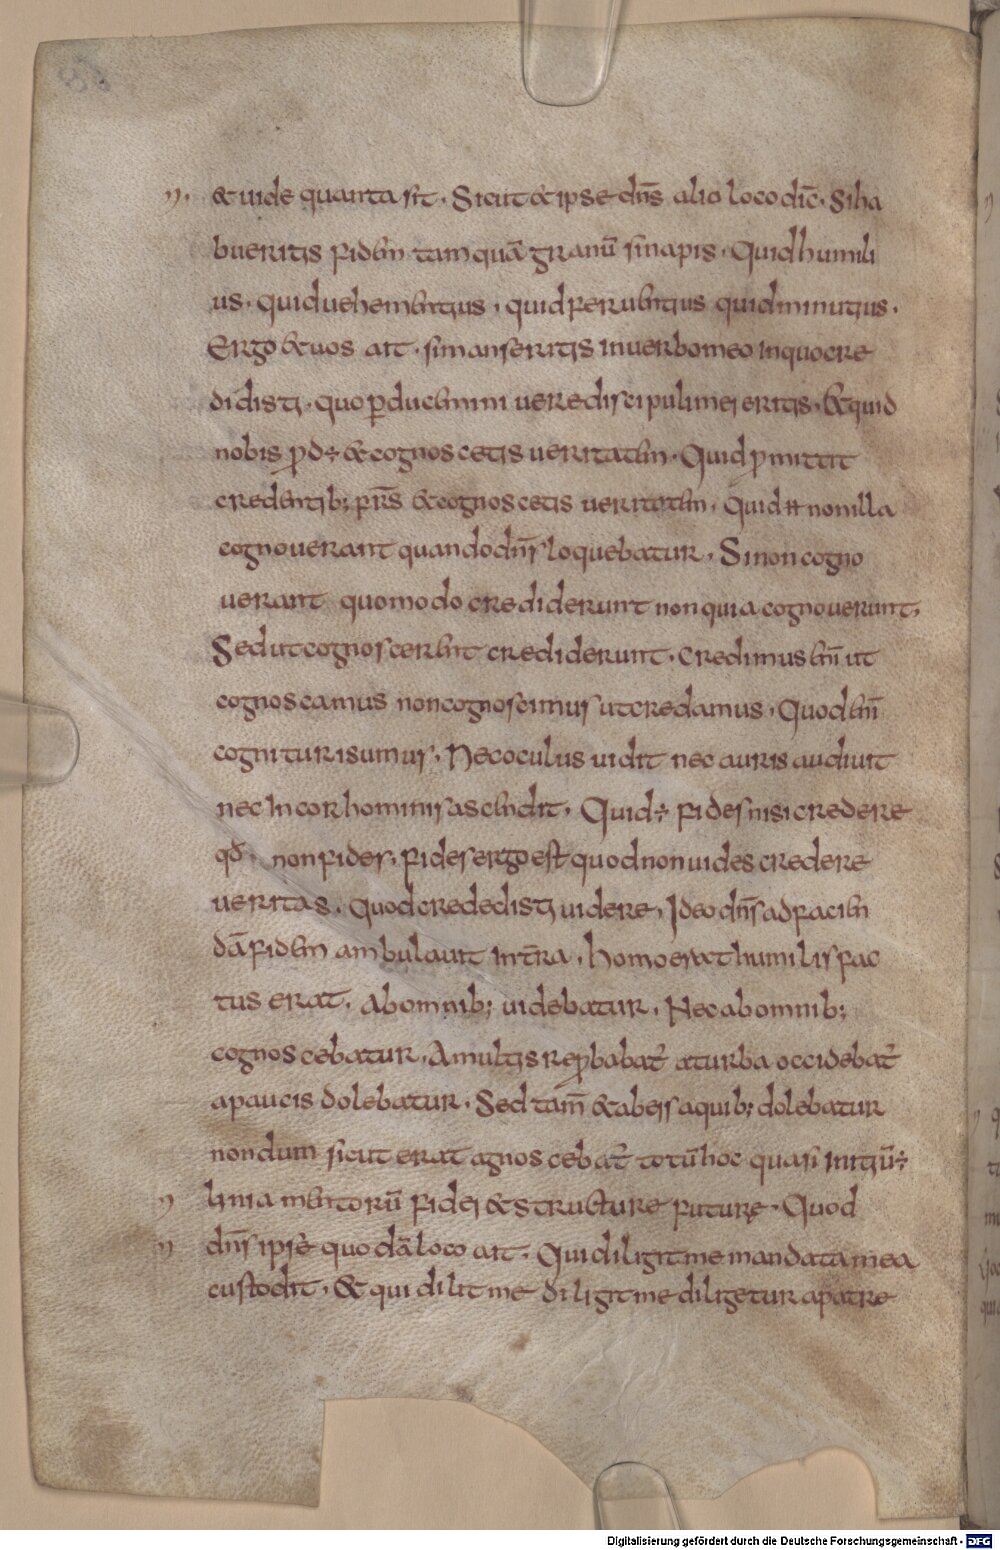 & uide quanta sit. Sicut & ipse dn̄s alio loco dic̄. Si ha
bueritis fidem tam quā granū sinapis. Quid humili
us. quid uehementius, quid feruentius quid minutius.
Ergo & uos ait. si manseritis in uerbo meo in quo cre
didistis. quo ꝑducemini uere discipuli mei eritis. & quid
nobis ꝓd÷ & cognoscetis ueritatem. Quid ꝓmittit
credentib; frr̄s & cognoscetis ueritatem. Quid non illa
cognouerant quando dn̄s loquebatur. Si non cogno
uerant quomodo crediderunt non quia cognouerunt.
Sed ut cognoscerent crediderunt. Credimus eni̅ ut
cognoscamus non cognoscimus ut credamus. Quod eni̅
cognituri sumus. Nec oculus uidit nec auris audiuit
nec in cor hominis ascendit. Quid ÷ fides nisi credere
qđ non fides. fides ergo est quod non uides credere
ueritas. Quod credidisti uidere, Ideo dn̄s ad faciem
dā fidem ambulauit int̄ra. homo erat humilis fac
tus erat. Ab omnib; uidebatur. Nec ab omnib;
cognoscebatur. A multis reꝓbabat᷑ a turba occidebat᷑
a paucis dolebatur. Sed tam̄ & ab eis a quib; dolebatur
nondum sicut erat agnoscebat᷑ totū hoc quasi initiū ÷
linia mentorū fidei & structure future. Quod
dn̄s ipse quodā loco ait. Qui diligit me mandata mea
custodit. & qui dilit me diligit me diligetur a patre
Digitalisierung gefördert durch die Deutsche Forschungsgemeinschaft - DFG